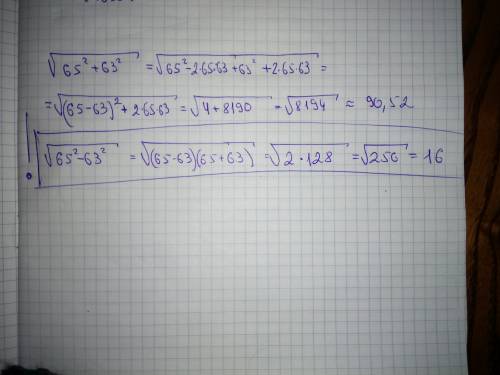 √(65²+63²) = √(65²-2·65·63+63²+2·65·63) =
= √((65-63)²+2·65·63) = √(4+8190) = √8194 ≈ 90,52
! √(65²-63²) = √((65-63)(65+63)) = √(2·128) = √256 = 16